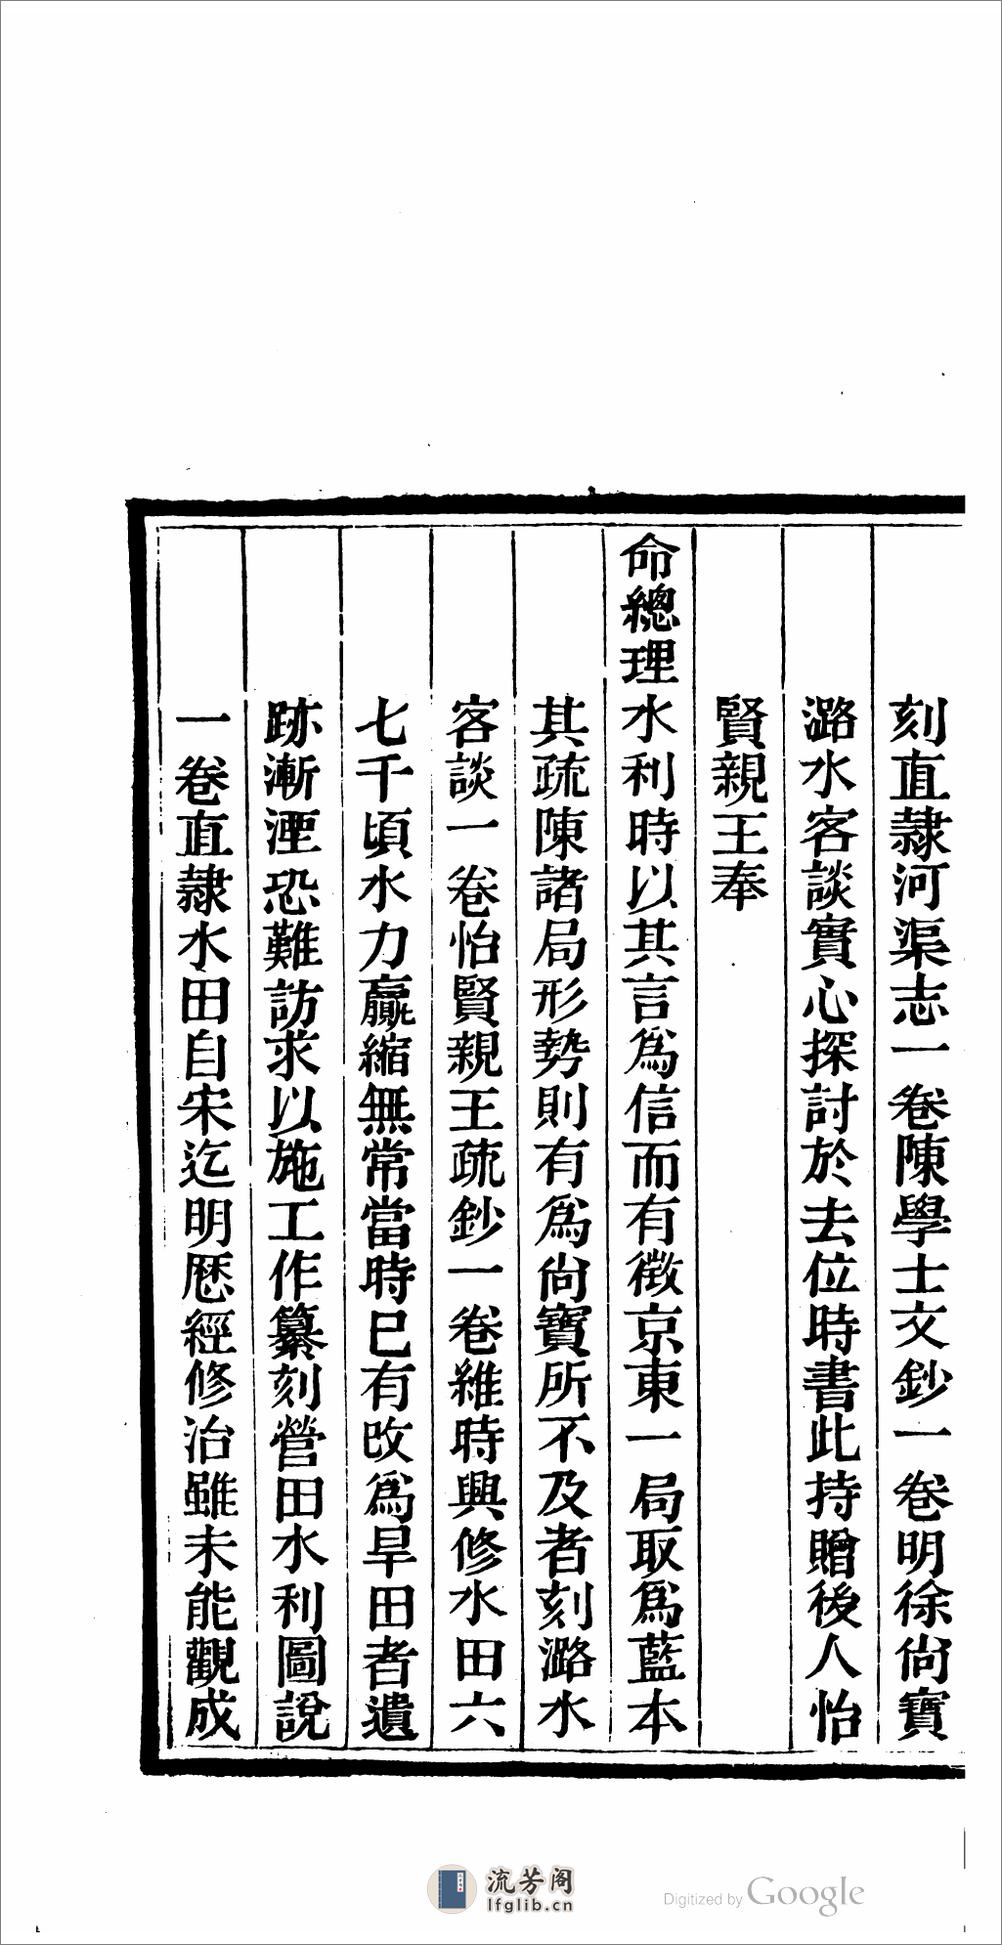 刻直隷河渠志一卷陳學士文鈔一卷明徐尙寶
潞水客談實心探討於去位時書此持贈後人怡
賢親王奉
命總理水利時以其言爲信而有徵京東一局取爲藍本
其疏陳諸局形勢則有爲尙寶所不及者刻潞水
客談一卷怡賢親王疏鈔一卷維時興修水田六
七千頃水力贏縮無常當時已有改爲旱田者遺
跡漸湮恐難訪求以施工作纂刻營田水利圖說
一卷直隷水田自宋迄明歷經修治雖未能觀成
流芳阁
lfglib.cn
Digitized by Google